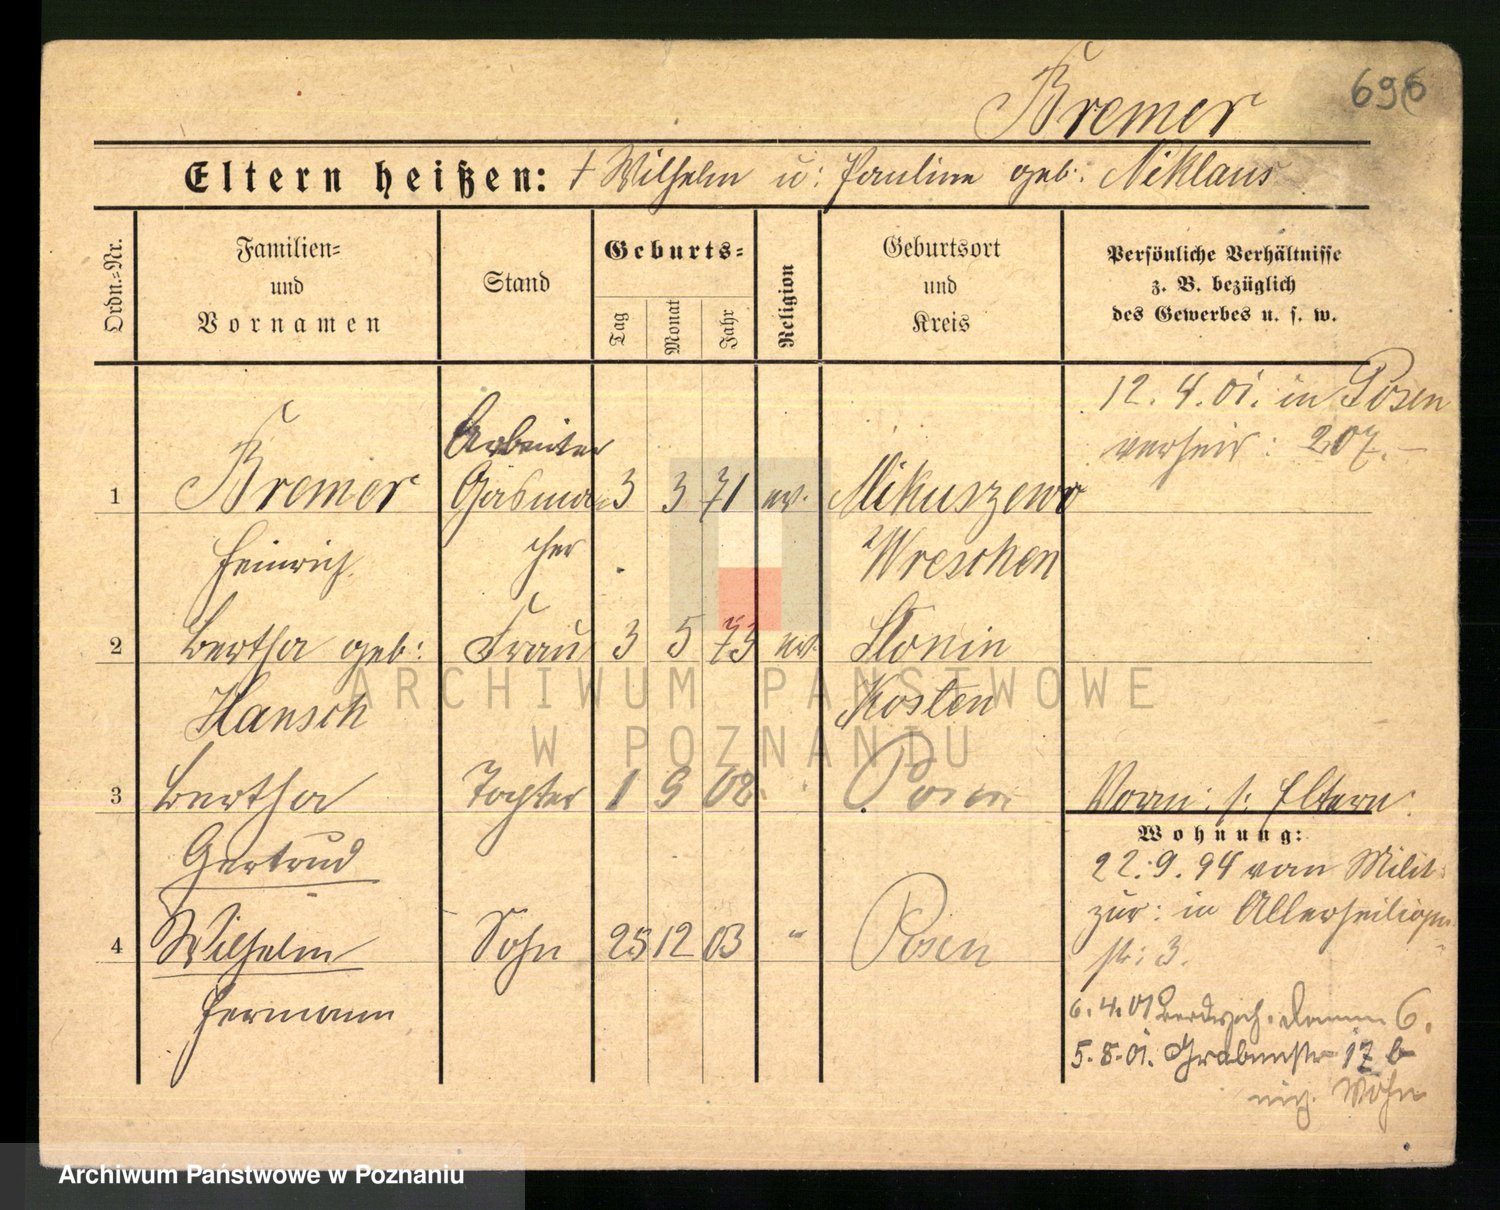 698
Bremer
Eltern heißen: † Wilhelm u: Pauline geb: Niklaus
Ordn.=Nr.
Familien=
und
Vornamen
Stand
Geburts=
Tag
Monat
Jahr
Religion
Geburtsort
und
Kreis
Persönliche Verhältnisse
z. B. bezüglich
des Gewerbes u. s. w.
12. 4. 01. in Posen
verheir: 207.
Arbeiter
1 Bremer 3 3 71 ev. Mikuszewo
Heinrich Wreschen
2 Bertha geb: Frau 3 5 73 ev. Slonin
Hansch Kosten
3 Bertha Tochter 1 9 02. Posen Vorn: s: Eltern:
Gertrud
Wohnung:
22. 9. 94 vom Milit:
zur: in Allerheiligen
str: 3.
4 Wilhelm Sohn 25 12 03 " Posen
Hermann
6. 4. 01 Damm 6.
5. 8. 01. Grabenstr 17 b
Wohn
ARCHIWUM PAŃSTWOWE
W POZNANIU
Archiwum Państwowe w Poznaniu